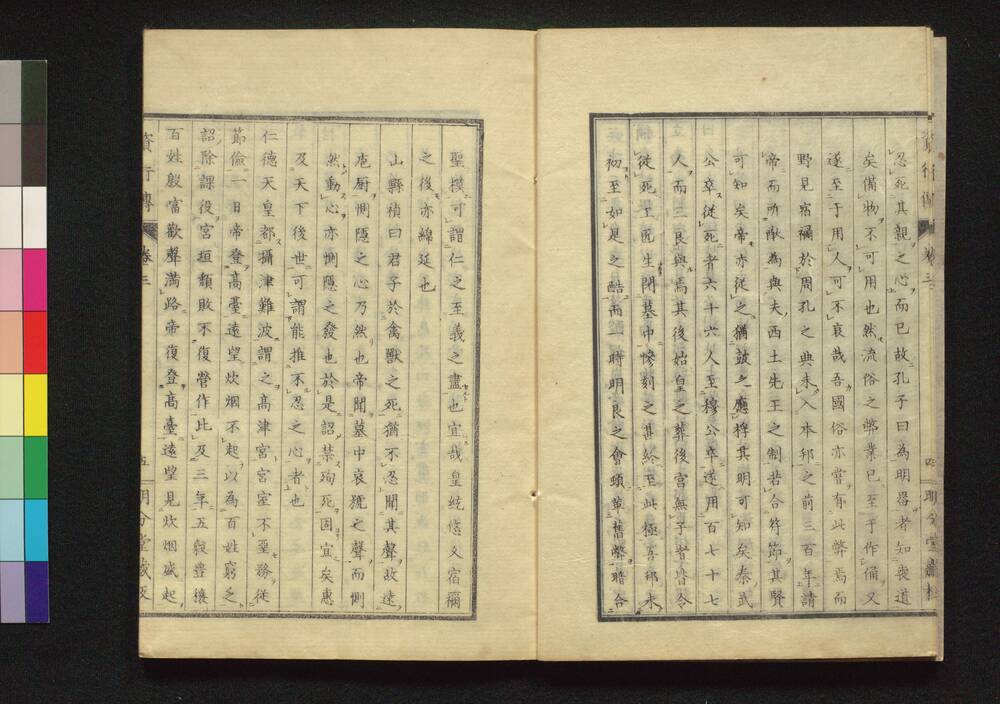 忍死其親之心而已故孔子曰為明器者知喪道
矣備物不可用也然流俗之弊業已至乎作俑又
遂至于用人可不哀哉吾國俗亦嘗有此弊焉而
野見宿禰於周孔之典未入本邦之前三百年請
帝而所猷為與夫西土先王之制若合符節其賢
可知矣帝亦從之猶鼓之應桴其明可知矣秦武
公卒從死者六十六人至穆公卒遂用百七十七
人而三良與焉其後始皇之葬後宮無子者皆令
從死工匠生閉墓中慘刻之甚終至此極吾邦未
初至如是之酷而一時明良之會頓革舊弊暗合
聖模可謂仁之至義之盡也宜哉皇紘悠久宿禰
之後亦綿延也
山縣禎曰君子於禽獸之死猶不忍聞其聲故遠
庖厨惻隱之心乃然也帝聞墓中哀號之聲而惻
然動心亦惻隱之發也於是詔禁殉死固宜矣惠
及天下後世可謂能推不忍之心者也
仁德天皇都攝津難波謂之高津宮宮室不堊務從
節儉一日帝登高臺遠望炊烟不起以為百姓窮乏
詔除課役宮垣頽敗不復營作此及三年五穀豊穰
百姓殷富歡聲滿路帝復登高臺遠望見炊烟盛起
資行傳 卷三 五 明分堂藏板